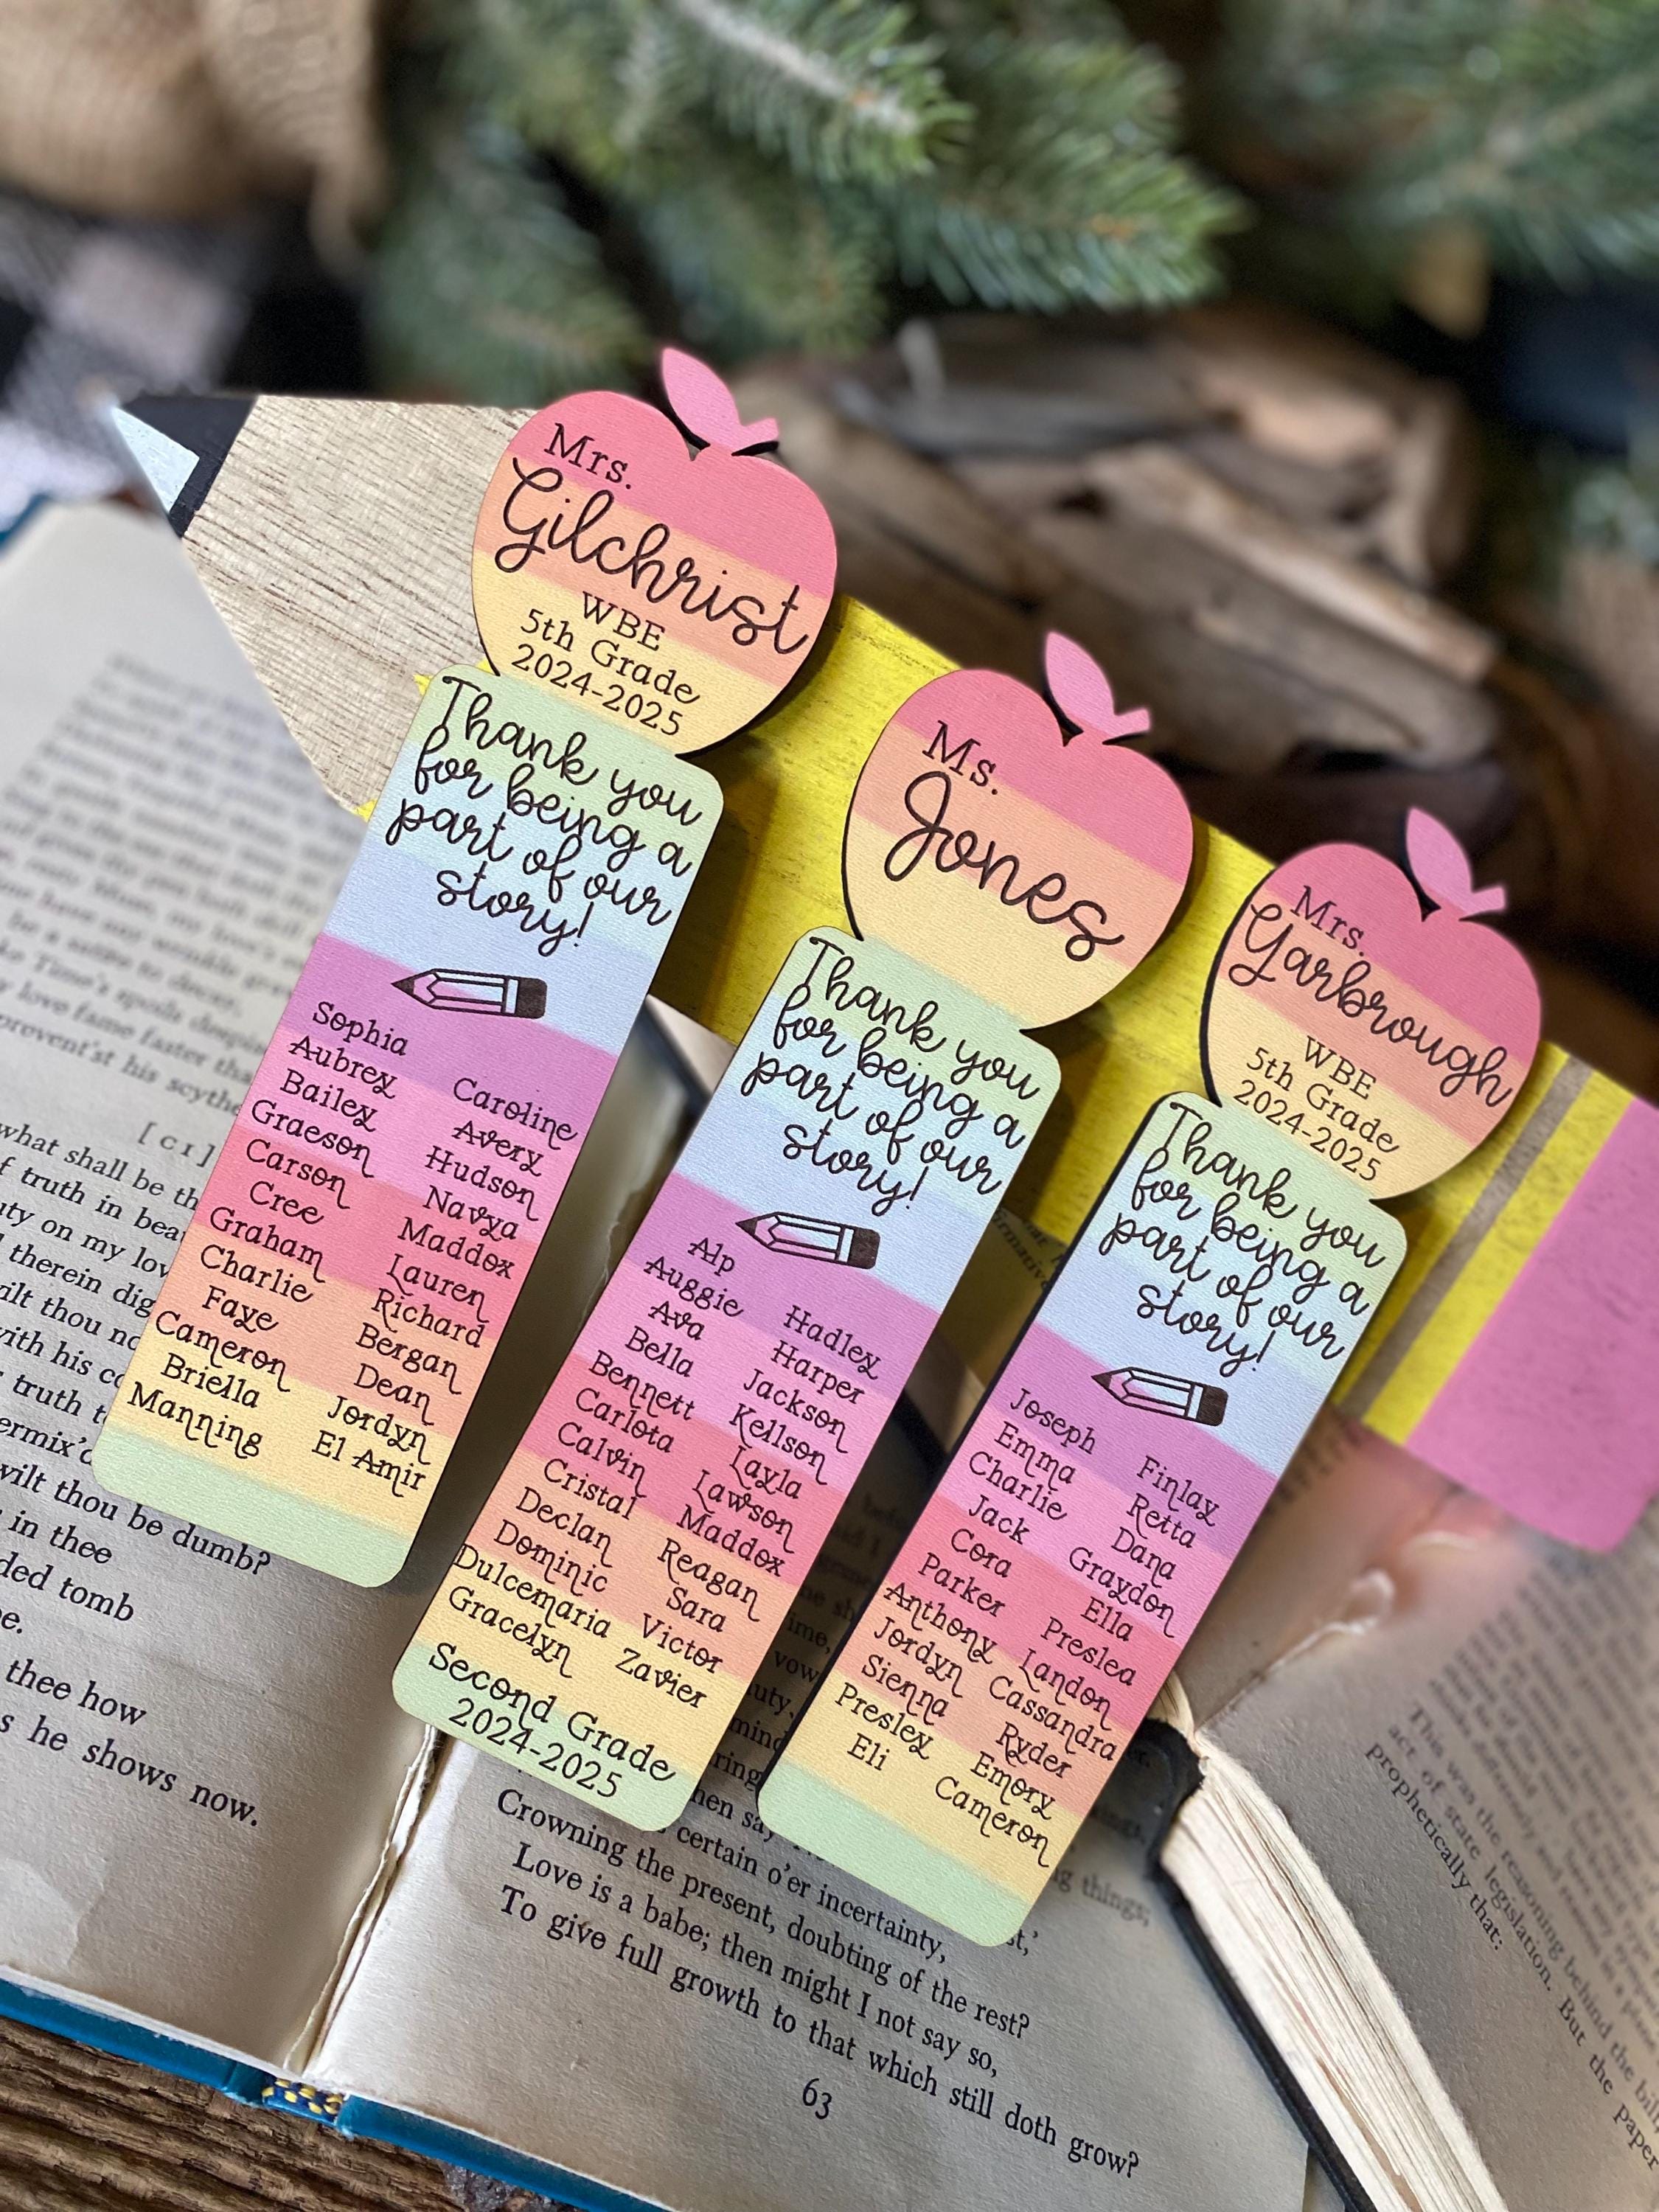 Mrs.
Gilchrist
WBE
5th Grade
2024-2025
Thank you
for being a
part of our
story!
Sophia
Aubrey
Bailey
Graeson
Carson
Cree
Graham
Charlie
Faye
Cameron
Briella
Manning
Caroline
Avery
Hudson
Navya
Maddox
Lauren
Richard
Bergan
Dean
Jordyn
El Amir
Ms.
Jones
Thank you
for being a
part of our
story!
Alp
Auggie
Ava
Bella
Bennett
Carlota
Calvin
Cristal
Declan
Dominic
Dulcemaria
Gracelyn
Hadley
Harper
Jackson
Kellson
Layla
Lawson
Maddox
Reagan
Sara
Victor
Zavier
Second Grade
2024-2025
Mrs.
Yarbrough
WBE
5th Grade
2024-2025
Thank you
for being a
part of our
story!
Joseph
Emma
Charlie
Jack
Cora
Parker
Anthony
Jordyn
Sienna
Presley
Eli
Finlay
Retta
Dana
Graydon
Ella
Preslea
Landon
Cassandra
Ryder
Emory
Cameron
[ C I ]
what shall be
truth in
on my
therein
thou
with his
truth
wilt thou be dumb?
in thee
tomb
thee how
he shows now.
certain o'er incertainty,
Crowning the present, doubting of the rest?
Love is a babe; then might I not say so,
To give full growth to that which still doth grow?
63
This was the reasoning behind the
act of state legislation. But the paper
prophetically that: